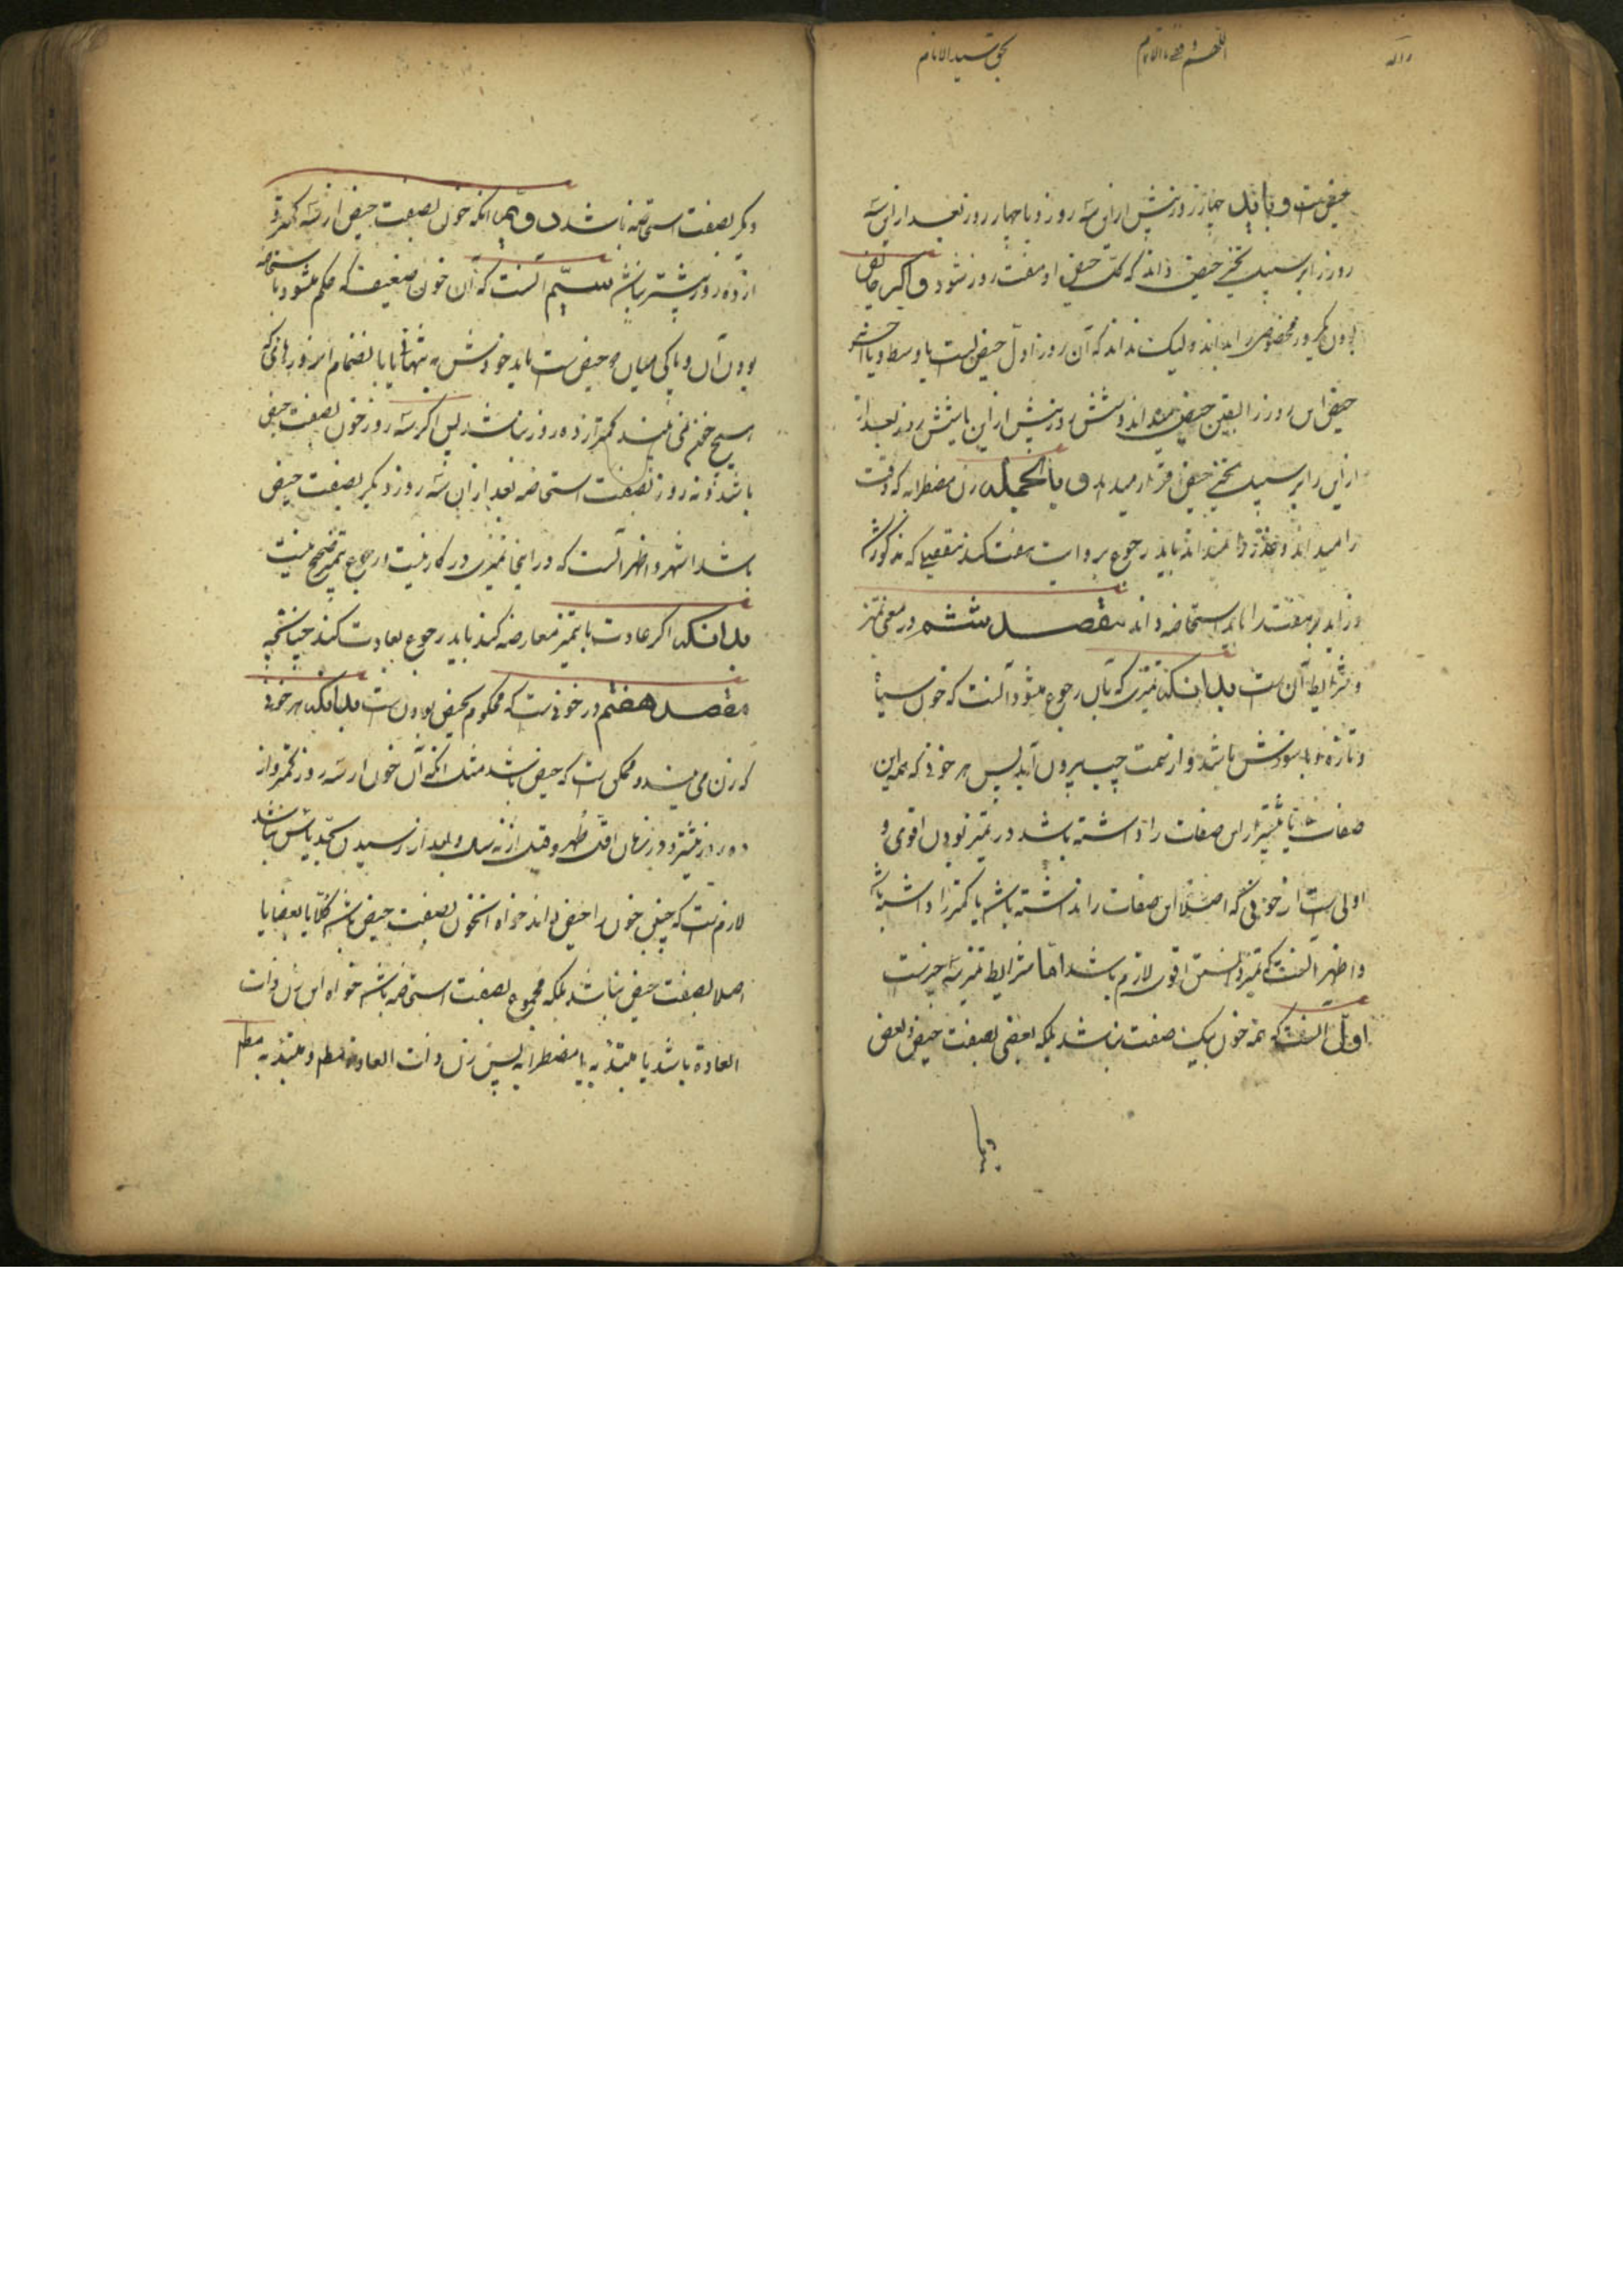 بحق سید الانام
حیض است و باید چهار روز پیش ازین سه روز و یا چهار روز بعد ازین سه
روز را بر سبیل تخییر حیض داند که کل حیض او هفت روز شود و اگر حایض
بودن یکروز مخصوص را بداند ولیک نداند که آن روز اول حیض است یا وسط و یا آخر
حیض این روز را بیقین حیض میداند و شش روز پیش ازین یا شش روز بعد از
ازین را بر سبیل تخییر حیض قرار میدهد و بالجمله زن مضطربه که وقت
را میداند و عدد را نمیداند باید رجوع بروایت هفت کند بتفصیلی که مذکور شد
و زاید بر هفت را باید استحاضه داند مقصد ششم در معنی تمیز
و شرایط آن است بدانکه تمیزی که بآن رجوع میشود آنست که خون سیاه
و تازه و با سوزش باشد و از سمت چپ بیرون آید پس هر خونی که همه این
صفات یا بیشتر این صفات را داشته باشد در تمیز بودن اقوی و
اولی است از خونی که اصلا این صفات را نداشته باشد یا کمتر را داشته باشد
و اظهر آنست که تمیز دانستن اقوی لازم باشد اما شرایط تمیز سه چیز است
اول آنست که همه خون بیک صفت نباشد بلکه بعضی بصفت حیض و بعض
دیگر بصفت استحاضه باشد دویم آنکه خون بصفت حیض از سه کمتر و
از ده روز بیشتر نباشد سیم آنست که آن خون ضعیف که حکم میشود باستحاضه
بودن آن و پاکی میان دو حیض است باید خودش به تنهائی یا با نضمام این روزهائی که
هیچ خون نمی بیند کمتر از ده روز نباشد پس اگر سه روز خون بصفت حیض
باشد و نه روز بصفت استحاضه بعد از آن سه روز دیگر بصفت حیض
باشد اشهر و اظهر آنست که در اینجا تمیزی در کار نیست و رجوع بتمیز صحیح نیست
بدانکه اگر عادت با تمیز معارضه کند باید رجوع بعادت کند چنانچه
مقصد هفتم در خونی است که محکوم بحیض بودن است بدانکه هر خونی
که زن می بیند و ممکن است که حیض باشد مثل آنکه آن خون از سه روز کمتر و از
ده روز بیشتر و در زمان اقل طهر و قبل از نه سال و بعد از رسیدن بحد یأس نباشد
لازم است که چنین خون را حیض داند خواه آنخون بصفت حیض باشد کلا یا بعضا یا
اصلا بصفت حیض نباشد بلکه مجموع بصفت استحاضه باشد خواه این زن ذات
العادة باشد یا مبتدئه یا مضطربه پس زن ذات العادة و مبتدئه